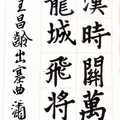 漢時關萬
龍城飛將
王昌齡出塞曲